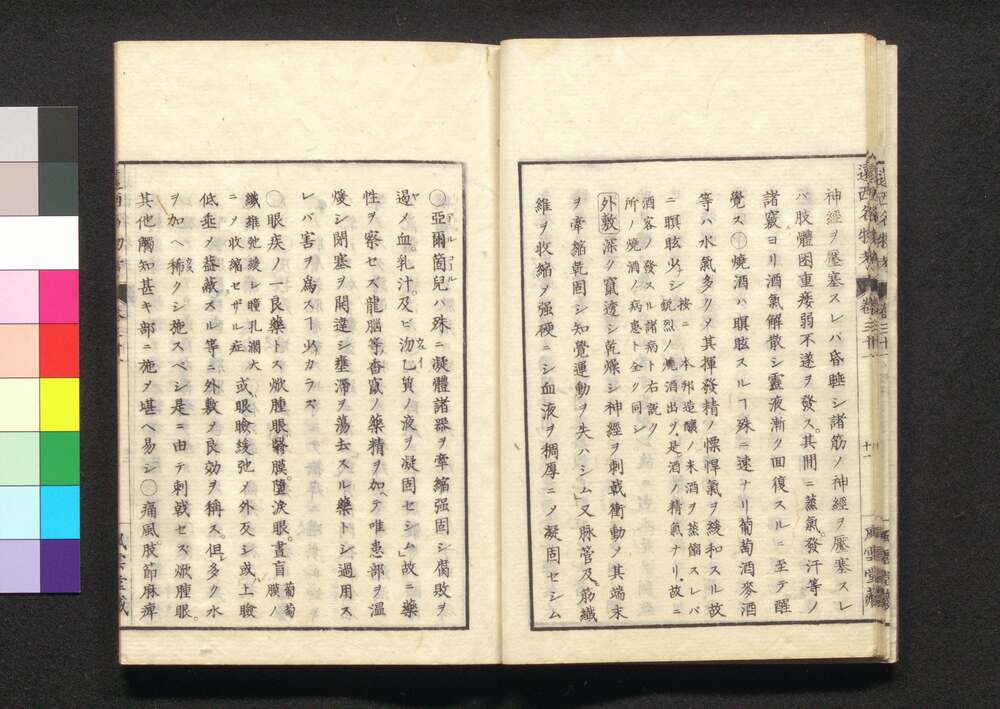 神經ヲ壓塞スレバ昏睡シ諸筋ノ神經ヲ壓塞スレ
バ肢體困重痿弱不遂ヲ發ス。其間ニ蒸氣發汗等ノ
諸竅ヨリ酒氣解散シ靈液漸ク回復スルニ至テ醒
覺ス○燒酒ハ瞑眩スルヿ殊ニ速ナリ葡萄酒麥酒
等ハ水氣多クメ其揮發精ノ慓悍氣ヲ緩和スル故
ニ瞑眩少シ
按ニ 本邦造釀ノ米酒ヲ蒸餾スレバ
鋭烈ノ燒酒出ヅ、是酒ノ精氣ナリ。故ニ
酒客ノ發スル諸病ト右説ク
所ノ燒酒ノ病患ト全ク同シ
外敷 深ク竄透シ乾燥シ神經ヲ刺戟衝動メ其端末
ヲ牽縮乾固シ知覺運動ヲ失ハシム」又脉管及筋纖
維ヲ收縮メ强硬ニシ血液ヲ稠厚ニメ凝固セシム
遠西名物考 卷三十二
十一
風雲堂藏
○亞爾箇兒ハ殊ニ凝體諸器ヲ牽縮强固シ腐敗ヲ
アルコール
過メ血。乳汁及ビ沕乙質ノ液ヲ凝固セシム」故ニ藥
性ヲ察セズ龍腦等香竄ノ藥精ヲ加ヘテ唯患部ヲ溫
煖シ閉塞ヲ開達シ壅滯ヲ蕩去スル藥トシ過用ス
レバ害ヲ爲スヿ少カラズ
○眼疾ノ一良藥トス焮腫眼。腎膜。墮淚眼。晝盲
葡萄膜ノ
纖維弛緩シ瞳孔濶大
ニメ收縮セザル症
或眼瞼緩弛メ外反シ或上瞼
低垂メ益蔽スル等ニ外敷メ良効ヲ稱ス。但多ク水
ヲ加ヘ稀クシ施スベシ是ニ由テ刺戟セズ焮腫眼。
其他觸知甚キ部ニ施メ堪ヘ易シ○痛風。肢節麻痺